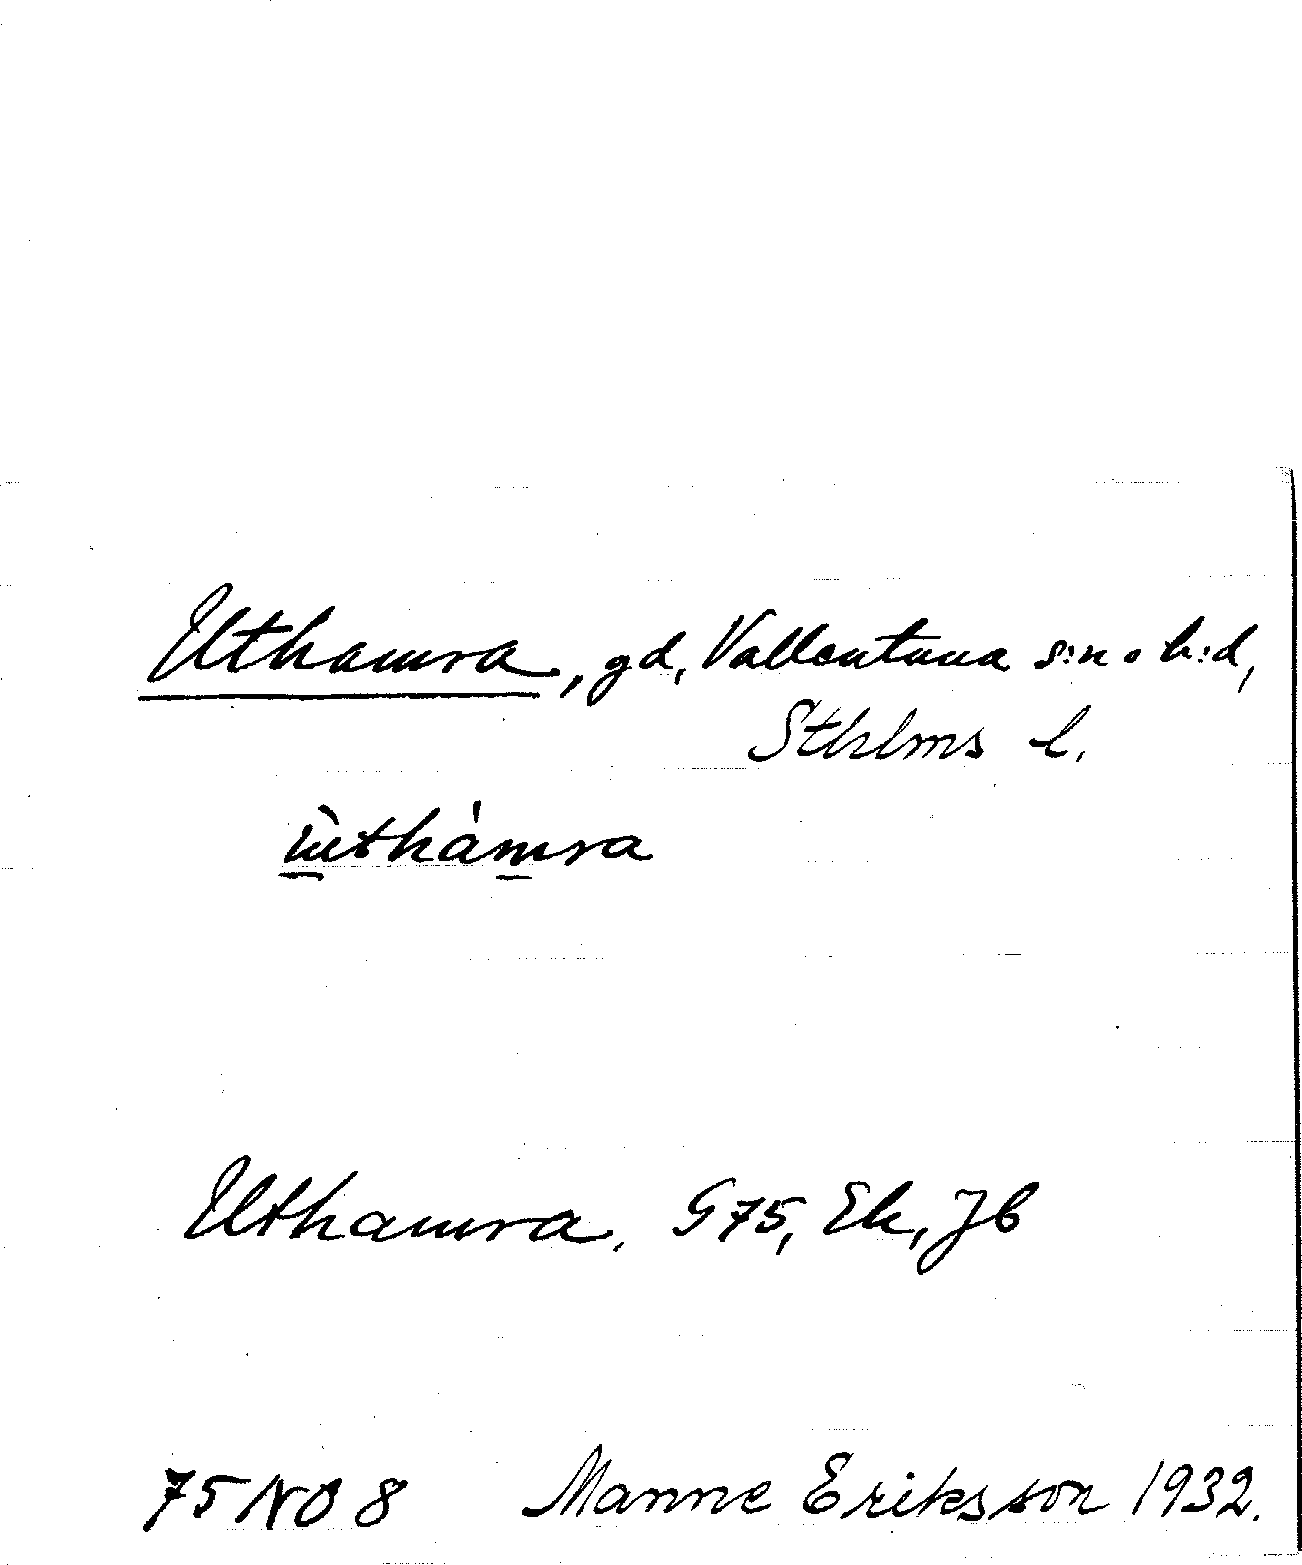 Uthamra, gd, Vallentuna s:n o h:d,
Sthlms l.
ùthámra
Uthamra. G75, Ek, Jb
75 NO 8 Manne Eriksson 1932.